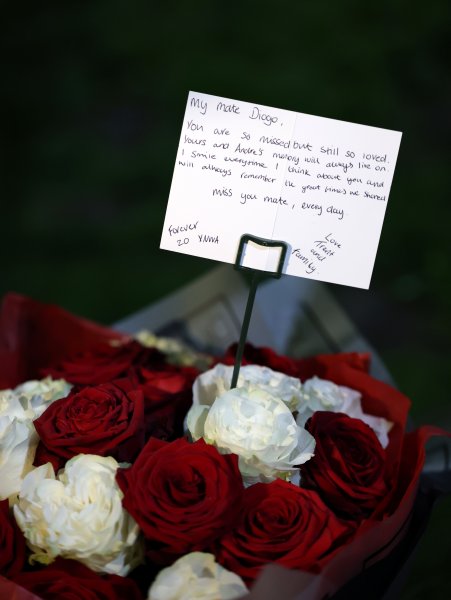 My mate Diogo,
You are so missed but still so loved.
Yours and Andre's memory will always live on
I smile everytime I think about you and
will always remember the great times we shared
Miss you mate, every day
Forever
20 YNWA
Love
Trent
and
family.